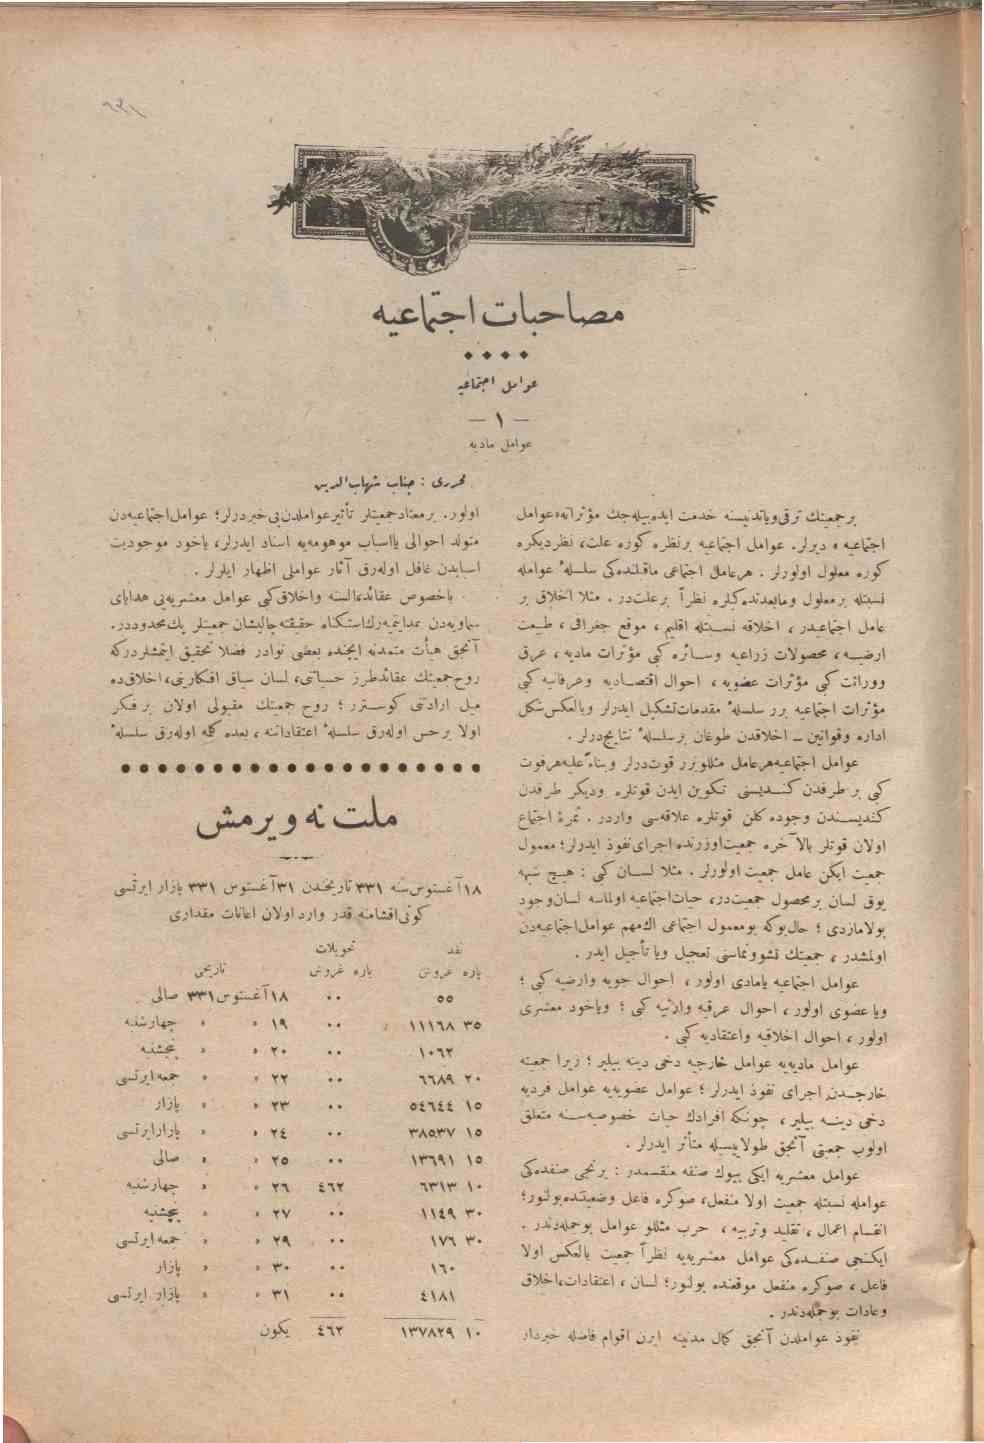 مصاحبات اجتماعيه
عوامل اجتماعيه
— ١ —
عوامل ماديه
محررى : جناب شهاب‌الدين
برجمعيتك ترقى وياتدنيسنه خدمت ايده‌بيله‌جك مؤثراته «عوامل
اجتماعيه » ديرلر. عوامل اجتماعيه برنظره كوره علت، نظر ديكره
كوره معلول اولورلر . هرعامل اجتماعى ماقبلنده‌كى سلسلهٔ عوامله
نسبتله برمعلول ومابعدنده‌كيلره نظراً برعلت‌در . مثلا اخلاق بر
عامل اجتماعيدر ، اخلاقه نسبتله اقليم ، موقع جغرافى ، طبيعت
ارضيه ، محصولات زراعيه وسائره كبى مؤثرات ماديه ، عرق
ووراثت كبى مؤثرات عضويه ، احوال اقتصاديه وعرفانيه كبى
مؤثرات اجتماعيه برر سلسلهٔ مقدمات تشكيل ايدرلر وبالعكس شكل
اداره وقوانين ــ اخلاقدن طوغان برسلسلهٔ نتايجدرلر .
عوامل اجتماعيه هرعامل مثللو برر قوت‌درلر وبناءً عليه هرقوت
كبى بر طرفدن كنديسنى تكوين ايدن قوتلره وديكر طرفدن
كنديسندن وجوده كلن قوتلره علاقه‌سى واردر . ثمرهٔ اجتماع
اولان قوتلر بالآخره جمعيت اوزرنده اجراى نفوذ ايدرلر؛ معمول
جمعيت ايكن عامل جمعيت اولورلر . مثلا لسان كبى : هيچ شبهه
يوق لسان برمحصول جمعيت‌در، حيات اجتماعيه اولماسه لسان وجود
بولامازدى ؛ حال‌بوكه بومعمول اجتماعى اك‌مهم عوامل اجتماعيه‌دن
اولمشدر ، جمعيتك نشوونماسنى تعجيل ويا تأجيل ايدر .
عوامل اجتماعيه يامادى اولور ، احوال جويه وارضيه كبى ؛
ويا عضوى اولور ، احوال عرقيه وارثيه كبى ؛ وياخود معشرى
اولور ، احوال اخلاقيه واعتقاديه كبى .
عوامل ماديه‌يه عوامل خارجيه دخى دينه بيلير ؛ زيرا جمعيته
خارجدن اجراى نفوذ ايدرلر ؛ عوامل عضويه‌يه عوامل فرديه
دخى دينه بيلير ، چونكه افرادك حيات خصوصيه‌سنه متعلق
اولوب جمعيتى آنجق طولاييسيله متأثر ايدرلر .
عوامل معشريه ايكى بيوك صنفه منقسمدر : برنجى صنفده‌كى
عوامله نسبتله جمعيت اولا منفعل، صوكره فاعل وضعيتنده بولنور؛
انقسام اعمال ، تقليد وتربيه ، حرب مثللو عوامل بوجمله‌دندر .
ايكنجى صنفده‌كى عوامل معشريه‌يه نظراً جمعيت بالعكس اولا
فاعل ، صوكره منفعل موقعنده بولنور؛ لسان ، اعتقادات، اخلاق
وعادات بوجمله‌دندر .
نفوذ عواملدن آنجق كمال مدنيته ايرن اقوام فاضله خبردار
اولور. برمعتاد جمعيتلر تأثير عواملدن بى‌خبردرلر؛ عوامل اجتماعيه‌دن
متولد احوالى يا اسباب موهومه‌يه اسناد ايدرلر، ياخود موجوديت
اسبابدن غافل اوله‌رق آثار عواملى اظهار ايلرلر .
باخصوص عقائد، السنه واخلاق كبى عوامل معشريه‌يى هداياى
سماويه‌دن عد ايتميه‌رك استكناه حقيقته چاليشان جمعيتلر پك محدوددر.
آنجق هيأت متمدنه ايچنده بعض نوادر فضلا تحقيق ايتمشلردركه
روح جمعيتك عقائد طرز حسياتنى، لسان سياق افكارينى، اخلاق ده
ميل ارادتنى كوسترر ؛ روح جمعيتك مقبولى اولان بر فكر
اولا برحس اوله‌رق سلسلهٔ اعتقاداتنه ، بعده كلمه اوله‌رق سلسلهٔ
ملت نه ويرمش
١٨ آغستوس سنه ٣٣١ تاريخندن ٣١ آغستوس ٣٣١ بازار ايرتسى
كونى اقشامنه قدر وارد اولان اعانات مقدارى
نقد تحويلات
پاره غروش پاره غروش تاريخى
٥٥ ٠٠ ١٨ آغستوس ٣٣١ صالى
٣٥ ١١١٦٨ ٠٠ ١٩ » » چهارشنبه
١٠٦٢ ٠٠ ٢٠ » » پنجشنبه
٢٠ ٦٦٨٩ ٠٠ ٢٢ » » جمعه ايرتسى
١٥ ٥٤٦٤٤ ٠٠ ٢٣ » » بازار
١٥ ٣٨٥٣٧ ٠٠ ٢٤ » » بازار ايرتسى
١٥ ١٣٦٩١ ٠٠ ٢٥ » » صالى
١٠ ٦٣١٣ ٤٦٢ ٢٦ » » چهارشنبه
٣٠ ١١٤٩ ٠٠ ٢٧ » » پنجشنبه
٣٠ ١٧٦ ٠٠ ٢٩ » » جمعه ايرتسى
١٦٠ ٠٠ ٣٠ » » بازار
٤١٨١ ٠٠ ٣١ » » بازار ايرتسى
١٠ ١٣٧٨٢٩ ٤٦٢ يكون